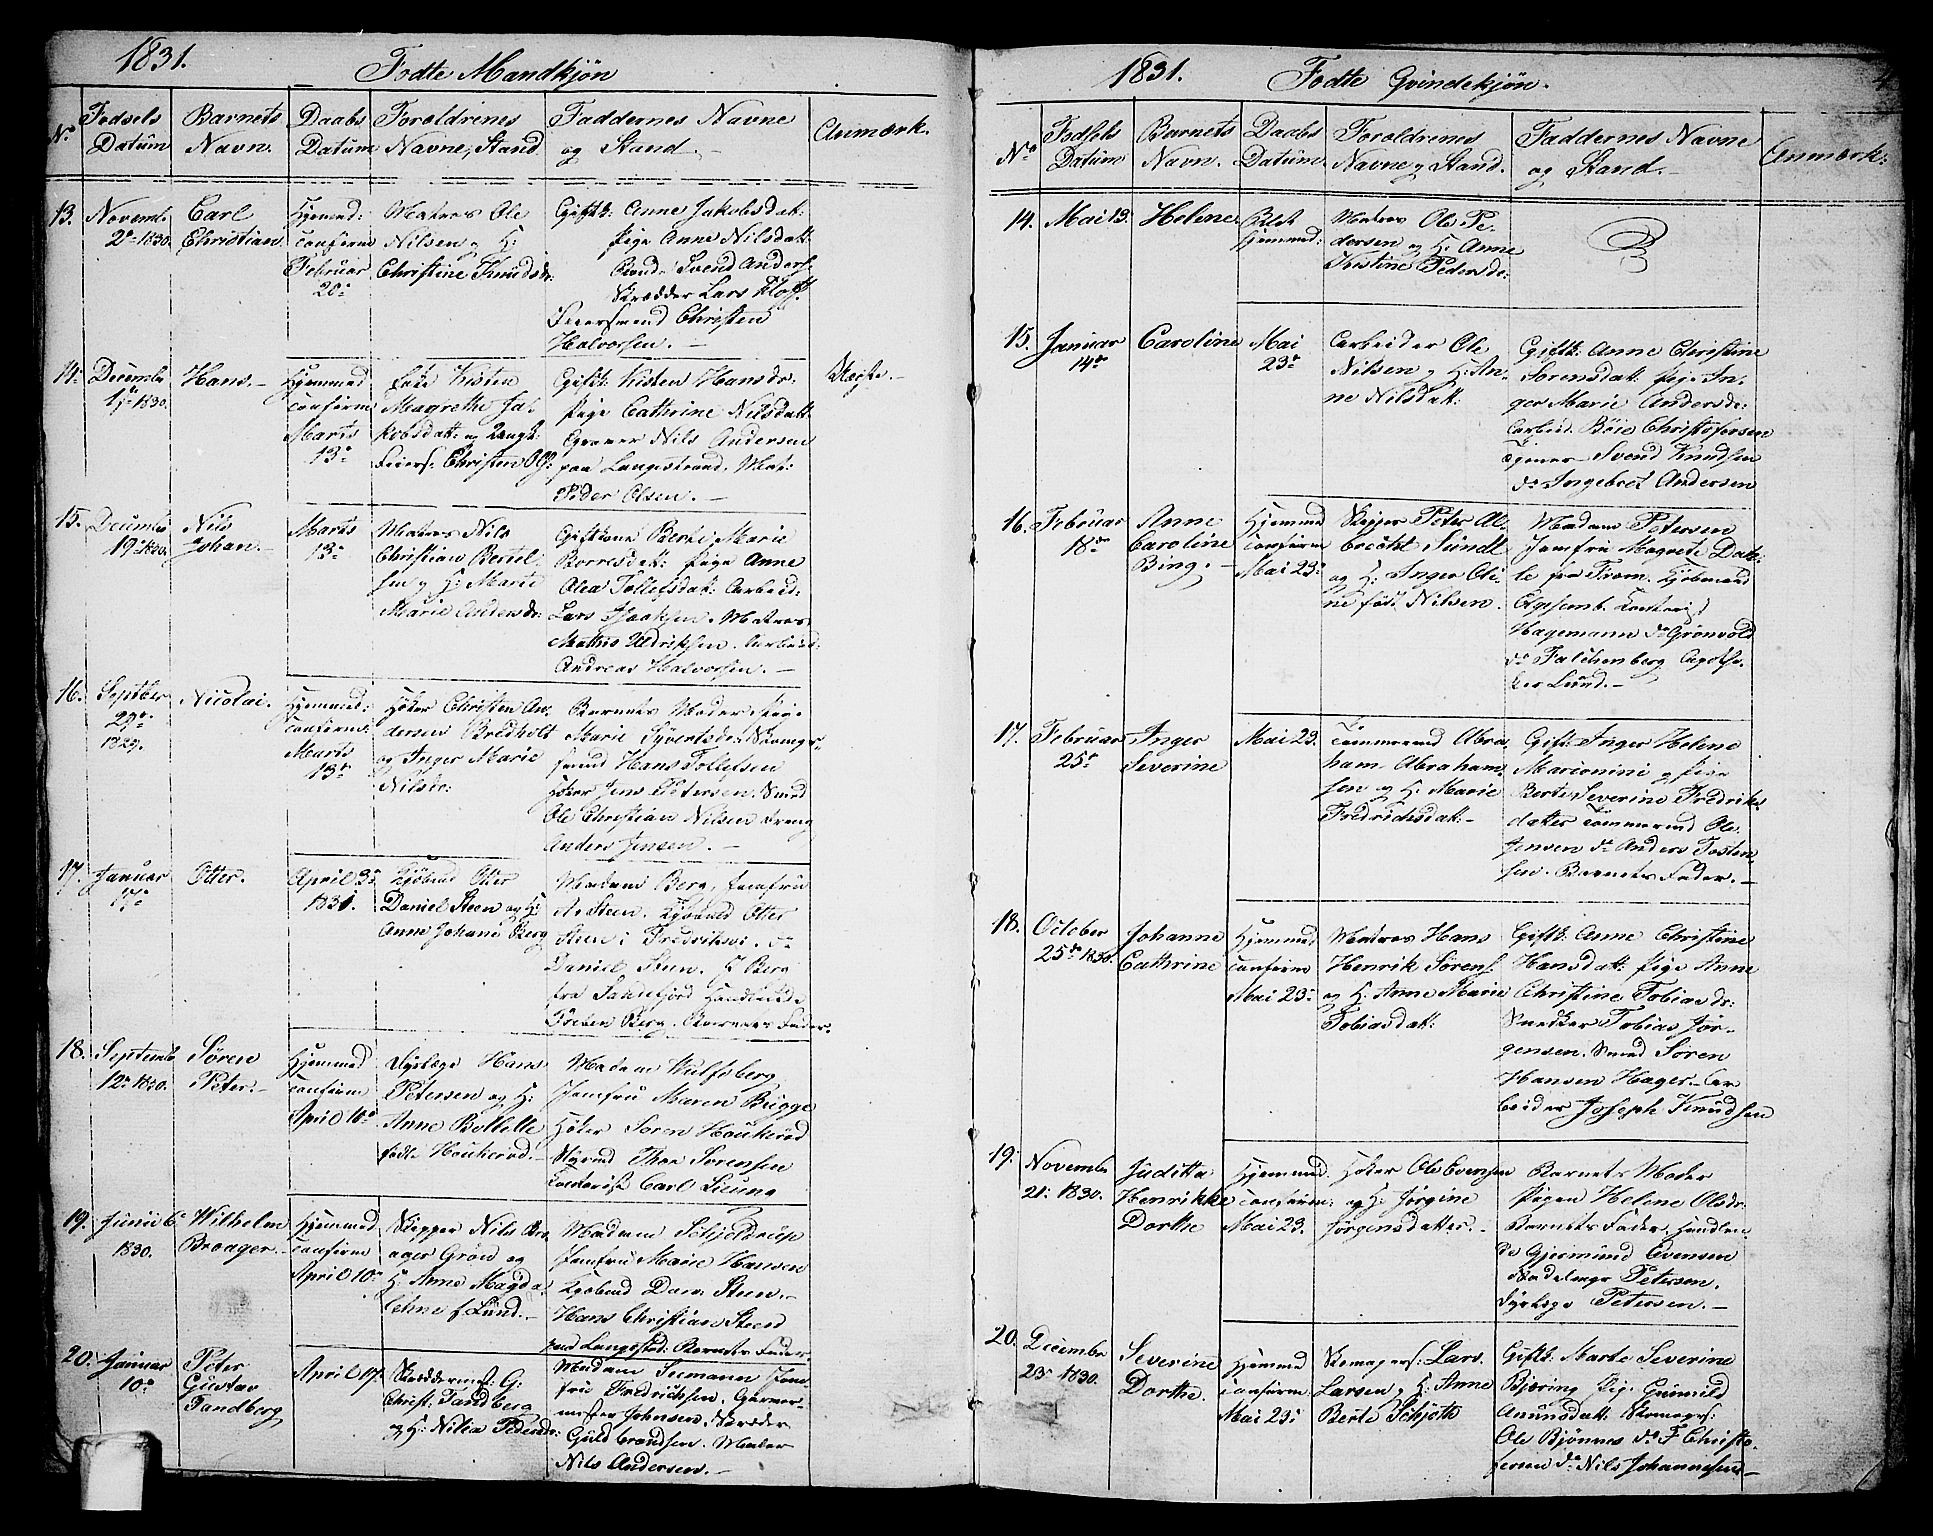 1831.
Fødte Mandkjøn
No
Fødsels Datum
Barnets Navn.
Daabs Datum
Forældrenes Navne, Stand
Faddernes Navne og Stand.
Anmærk.
13.
Novemb. 2de 1830.
Carl
Christian.
Hjemmed:
confirm
Februar
20de
Matros Ole
Nilsen og H:
Christine Knudsdr:
Giftk: Anne Jakobsdat:
Pige Anne Nilsdatt:
Svend Anders:
Skrædder Lars
Christen
Halvorsen. –
14.
Decembr
1830.
Hans. –
Hjemmed
confirm:
Marts
13de
Kisten
Magrethe Ja-
kobsdatt: og
Christen Ols:
Giftk: Kisten Hansdr:
Pige Cathrine Nilsdatt:
Graver Nils Andersen
paa Langestrand. Mat:
Peder Olsen. –
Uægte. –
15.
Decembr
19de 1830.
Nils
Johan. –
Marts
13de
Matros Nils
Christian Bertel-
sen og H: Marte
Marie Andersdr:
Giftkone Berte Marie
Borresdatt: Pige Anne
Olea Tollefsdat: Arbeid:
Lars Isaaksen. Matros
Mathis Uldriksen. Arbeid:
Andreas Halvorsen. –
16.
Septber
29de
1829.
Nicolai.
Hjemmed:
confirm:
Marts
13de
Høker Christen An-
dersen Bredholt
og Inger Marie
Nilsdr:
Barnets Moder. Pige
Marie Syvertsdr:
Hans Tollefsen
Høker Jens Petersen. Smed
Ole Christian Nilsen Dreng
Anders Jensen. –
17.
Januar
17de
Otter.
April 3de
1831.
Kjøbmd Otter
Daniel Steen og H:
Anne Johane Berg
Madam Berg, Jomfru
A. Steen. Kjøbmd Otter
Steen i Fredriksv. do
Daniel Steen. J Berg
fra Sandefjord Handlende
Preben Berg. Barnets Fader.
18.
Septembr
12te 1830.
Søren
Peter. –
Hjemmed
confirm
April 10de
Dyrlæge Hans
Petersen og H:
Anne Bollette
fødte Houkerød. –
Madam Wulfsberg
Jomfru Maren Bugge
Høker Søren Houkerød
Thor Sørensen
Contorist Carl
19.
Junii 6te
1830.
Wilhelm
Broager. –
Hjemmed
confirm
April 10de
Skipper Nils Bro-
ager Grøn og
H: Anne Magda-
lehne f. Lund. –
Madam Schjeldrup
Jomfru Marie Hansen
Kjøbmd Dan: Steen. –
Hans Christian Steen
ved Langestød: Barnets Fader.
20.
Januar
10de
Peter
Gustav
Tandberg
April 17de
Skræddermst: G:
Christ: Tandberg
og H: Nilia Pedersdr:
Madam Seemann Jom-
fru Fredricksen. Garver-
mester Johnsen. Skræder
Guldbrandsen. Maler
Nils Andersen. –
1831.
Fødte Qvindekjøn.
4
No
Fødsels Datum
Barnets Navn.
Daabs Datum.
Forældrenes Navne og Stand.
Faddernes Navne og Stand. –
Anmærk:
14.
Mai 13.
Helene.
Blot
hjemmed:
Matros Ole Pe-
dersen og H: Anne
Kistine Pedersdr:
15.
Januar
14de
Caroline
Mai
23de
Arbeider Ole
Nilsen og H: An-
ne Nilsdatt:
Giftk: Anne Christine
Sørensdatt: Pige In-
ger Marie Andersdr:
Arbeid. Böie Christofersen
Tjener Svend Knudsen
do Ingebret Andersen
16.
Februar
18de
Anne
Caroline
Bing. –
Hjemmed
confirm
Mai 23de
Skipper Peter Al-
brecht Sundt
og H: Inger Oli-
ne født Nilsen.
Madam Petersen
Jomfru Magrete Dahl
fra Trom. Kjøbmand
Contorist
Hagemann do Grønvold
do Falchenberg Apothe-
ker Lund. –
17.
Februar
25de
Inger
Severine
Mai 23.
Tømmermd Abra-
ham Abraham-
sen og H: Marie
Fredrichsdatt. –
Gift: Inger Helene
Marionini og Pige
Berte Severine Fredriks-
datter Tømmermd Ole
Jensen do Anders Tosten-
sen. Barnets Fader. –
18.
October
25de 1830.
Johanne
Cathrine
Hjemmed
confirm
Mai 23de
Matros Hans
Henrik Sørens:
og H: Anne Marie
Tobiasdatt:
Giftk: Anne Christine
Hansdatt: Pige Anne
Christine Tobiasdr:
Snedker Tobias Jør-
gensen. Smed Søren
Hansen Hager. Ar-
beider Joseph Knudsen
19.
Novembr
21: 1830.
Juditta
Henrikke
Dorthe
Hjemmed.
confirm:
Mai 23.
Høker Ole Evensen
og H: Jørgine
Jørgensdatter. –
Barnets Moder
Pigen Helene Olsdr:
Barnets Fader, Handlen-
de Gjermund Evensen
Petersen.
Dyrlæge Petersen. –
20.
Decembr
23de 1830.
Severine
Dorthe.
Hjemmed
confirm:
Mai 23:
Skomagers: Lars
Larsen og H: Anne
Berte Schjøth
Giftk: Marte Severine
Bjering Pig: Gunild
Amunsdatt: Skomagers:
Ole Bjønnes do F Christo-
fersen do Nils Johannesen –